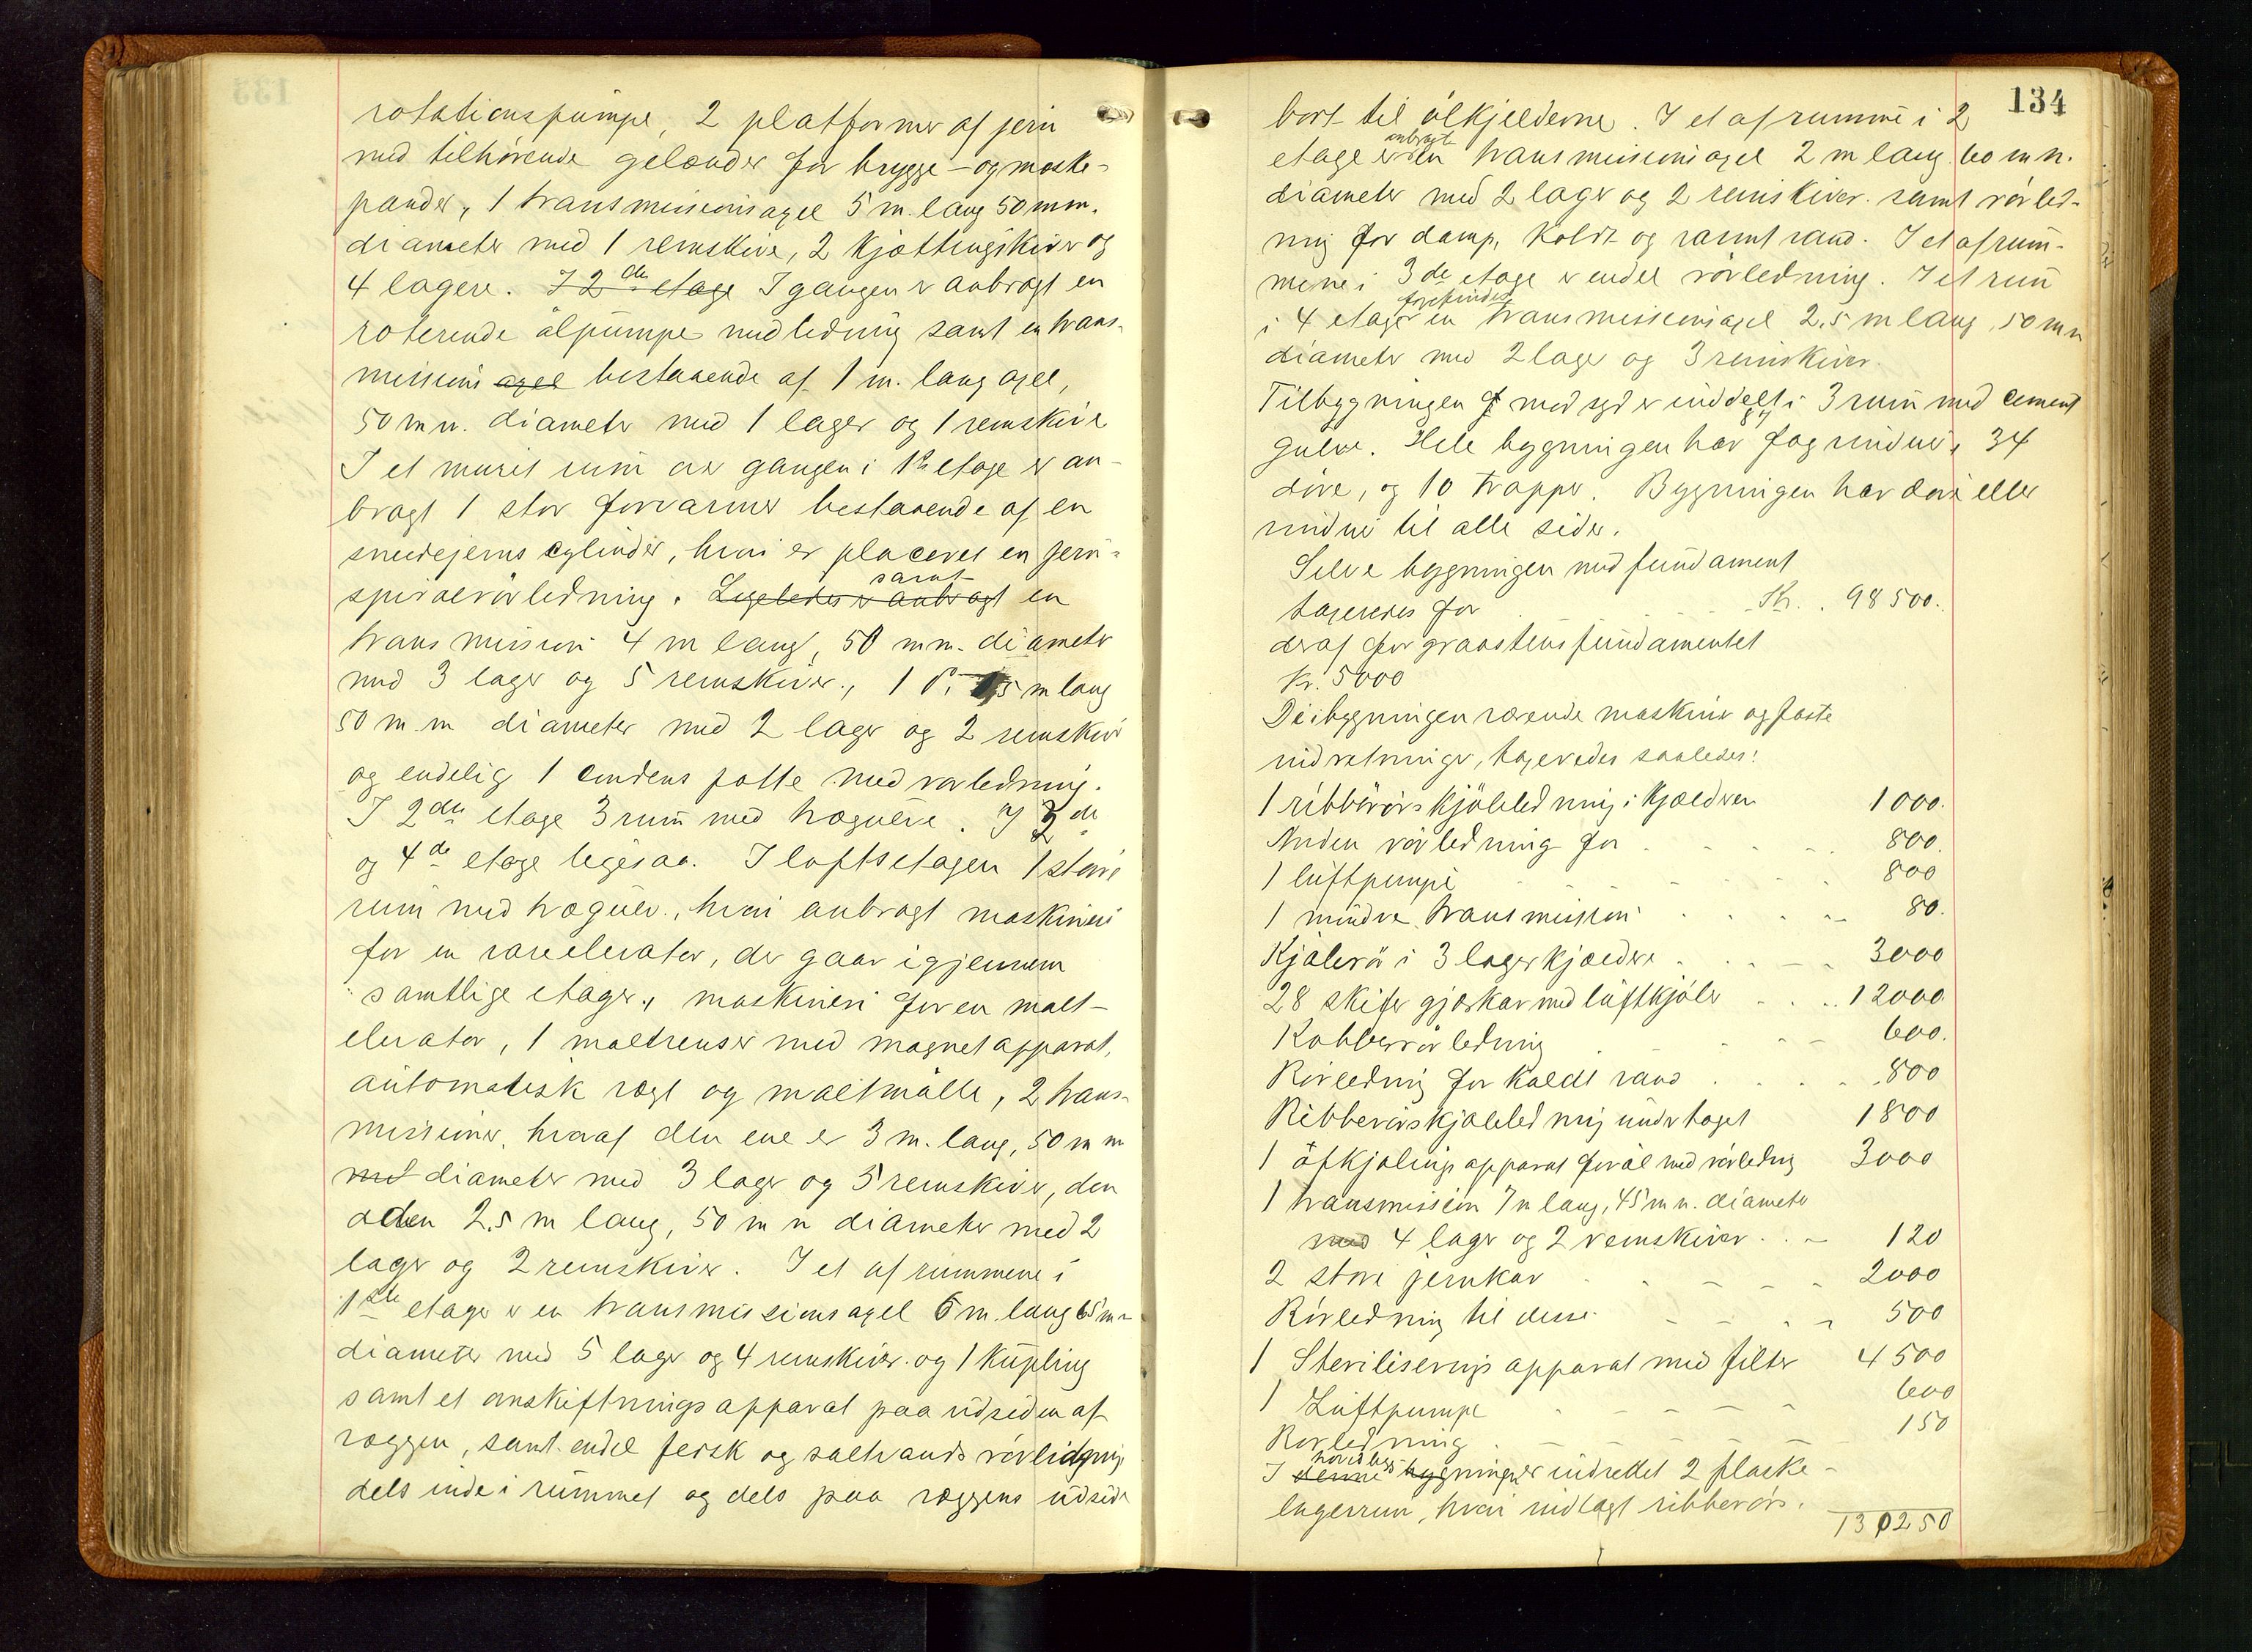 rotationspumpe, 2 platformer af jern
med tilhørende gelænder for brygge- og maske-
pander, 1 transmissionsaxel 5 m. lang 50 mm.
diameter med 1 remskive, 2 kjættingskiver og
4 lagere. I 2den etage I gangen er anbragt en
roterende ølpumpe med ledning samt en trans-
missions axel bestaaende af 1 m. lang axel,
50 m.m. diameter med 1 lager og 1 remskive
I et muret rum over gangen i 1ste etage er an-
bragt 1 stor forvarmer bestaaende af en
smedejerns cylinder, hvori er placeret en jern-
spiralrørledning. Ligeledes er anbragt samt en
transmission 4 m lang, 50 m.m. diameter
med 3 lager og 5 remskiver, 1 do 1,5 m lang
50 m.m diameter med 2 lager og 2 remskive
og endelig 1 condens potte med rørledning.
I 2den etage 3 rum med trægulve. I 3de
og 4de etage ligesaa. I loftsetagen 1 store
rum med trægulv, hvori anbragt maskineri
for en vareelevator, der gaar igjennem
samtlige etager, maskineri for en malt-
elevator, 1 maltrenser med magnetapparat,
automatisk vægt og maltmølle, 2 trans-
missioner, hvoraf den ene er 3 m. lang, 50 m m
med diameter med 3 lager og 5 remskiver, den
den 2,5 m lang, 50 m m diameter med 2
lager og 2 remskiver. I et af rummene i
1ste etage er en transmissionsaxel 6 m. lang 65 m m
diameter med 5 lager og 4 remskiver og 1 kupling
samt et omskiftningsapparat paa udsiden af
væggen, samt endel fersk og saltvands rørledning
dels inde i rummet og dels paa væggens udside
134
bort til ølkjelderne. I et af rummene i 2
etage er anbragt en transmissionsaxel 2 m lang 60 m m.
diameter med 2 lager og 2 remskiver samt rørled-
ning for damp, koldt og varmt vand. I et af rum-
mene i 3de etage er endel rørledning. I et rum
i 4 etage forefindes en transmissionsaxel 2,5 m lang, 50 m m
diameter med 2 lager og 3 remskiver.
Tilbygningen mod syd er inddelt i 3 rum med cement
gulve. Hele bygningen har 87 fag vinduer, 34
døre, og 10 trapper. Bygningen har døre eller
vinduer til alle sider.
Selve bygningen med fundament
taxeredes for Kr. 98 500.
deraf for graastensfundamentet
Kr. 5000
De i bygningen værende maskiner og faste
indretninger, taxeredes saaledes:
1 ribberørs kjøleledning i kjælderen 1 000.
Anden rørledning for 800.
1 luftpumpe 800
1 mindre transmission 80.
Kjølerør i 3 lagerkjældere 3000
28 skifer gjærkar med luftkjøler 12000
Kobberrørledning 600.
Rørledning for koldt vand 800
Ribberørskjøleledning under taget 1800
1 afkjølings apparat for øl med rørledning 3000
1 transmission 7 m lang, 45 m m. diameter
med 4 lager og 2 remskiver 120
2 store jernkar 2000
Rørledning til disse 500
1 Steriliserings apparat med filter 4 500
1 Luftpumpe 600
Rørledning 150
I denne hovedbygningen er indrettet 2 flaske-
lagerrum, hvori indlagt ribberørs.
130250